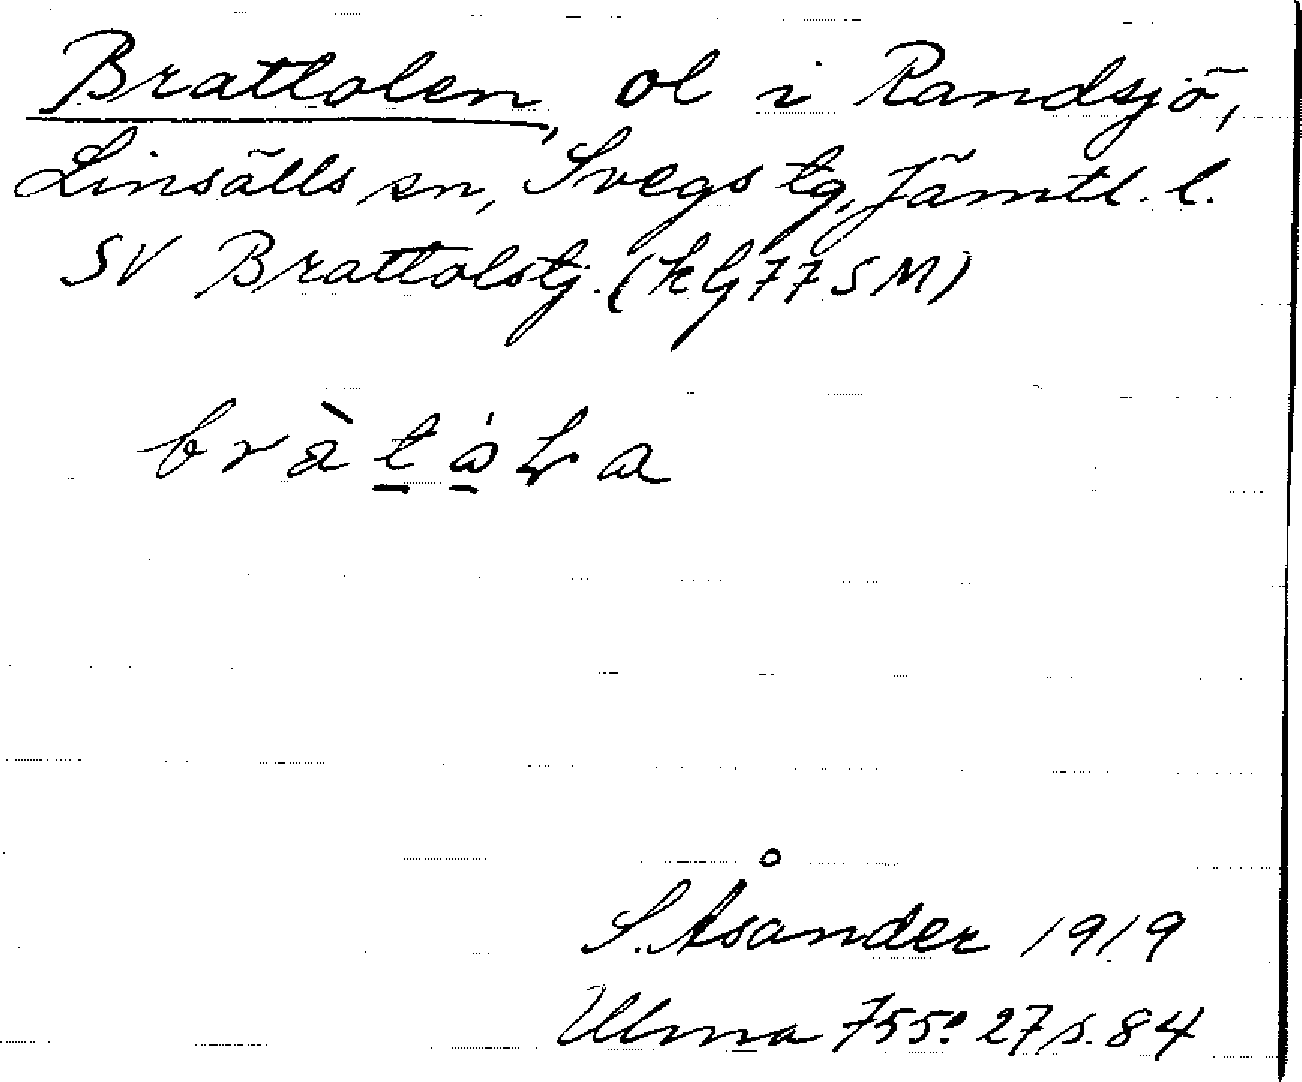 Brattolen, ol i Randsjö,
Linsälls sn, Svegs tg, Jämtl. l.
SV Brattolstj. (kg 77 SM)
bràtåLa
S. Åsander 1919
Ulma 755: 27 s. 84